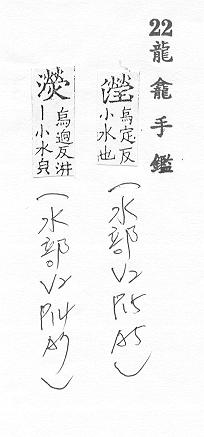 22龍龕手鑑
瀅烏定反小水也(水部V2P15A5)
濙烏迥反汫丨小水皃(水部V2P14A7)